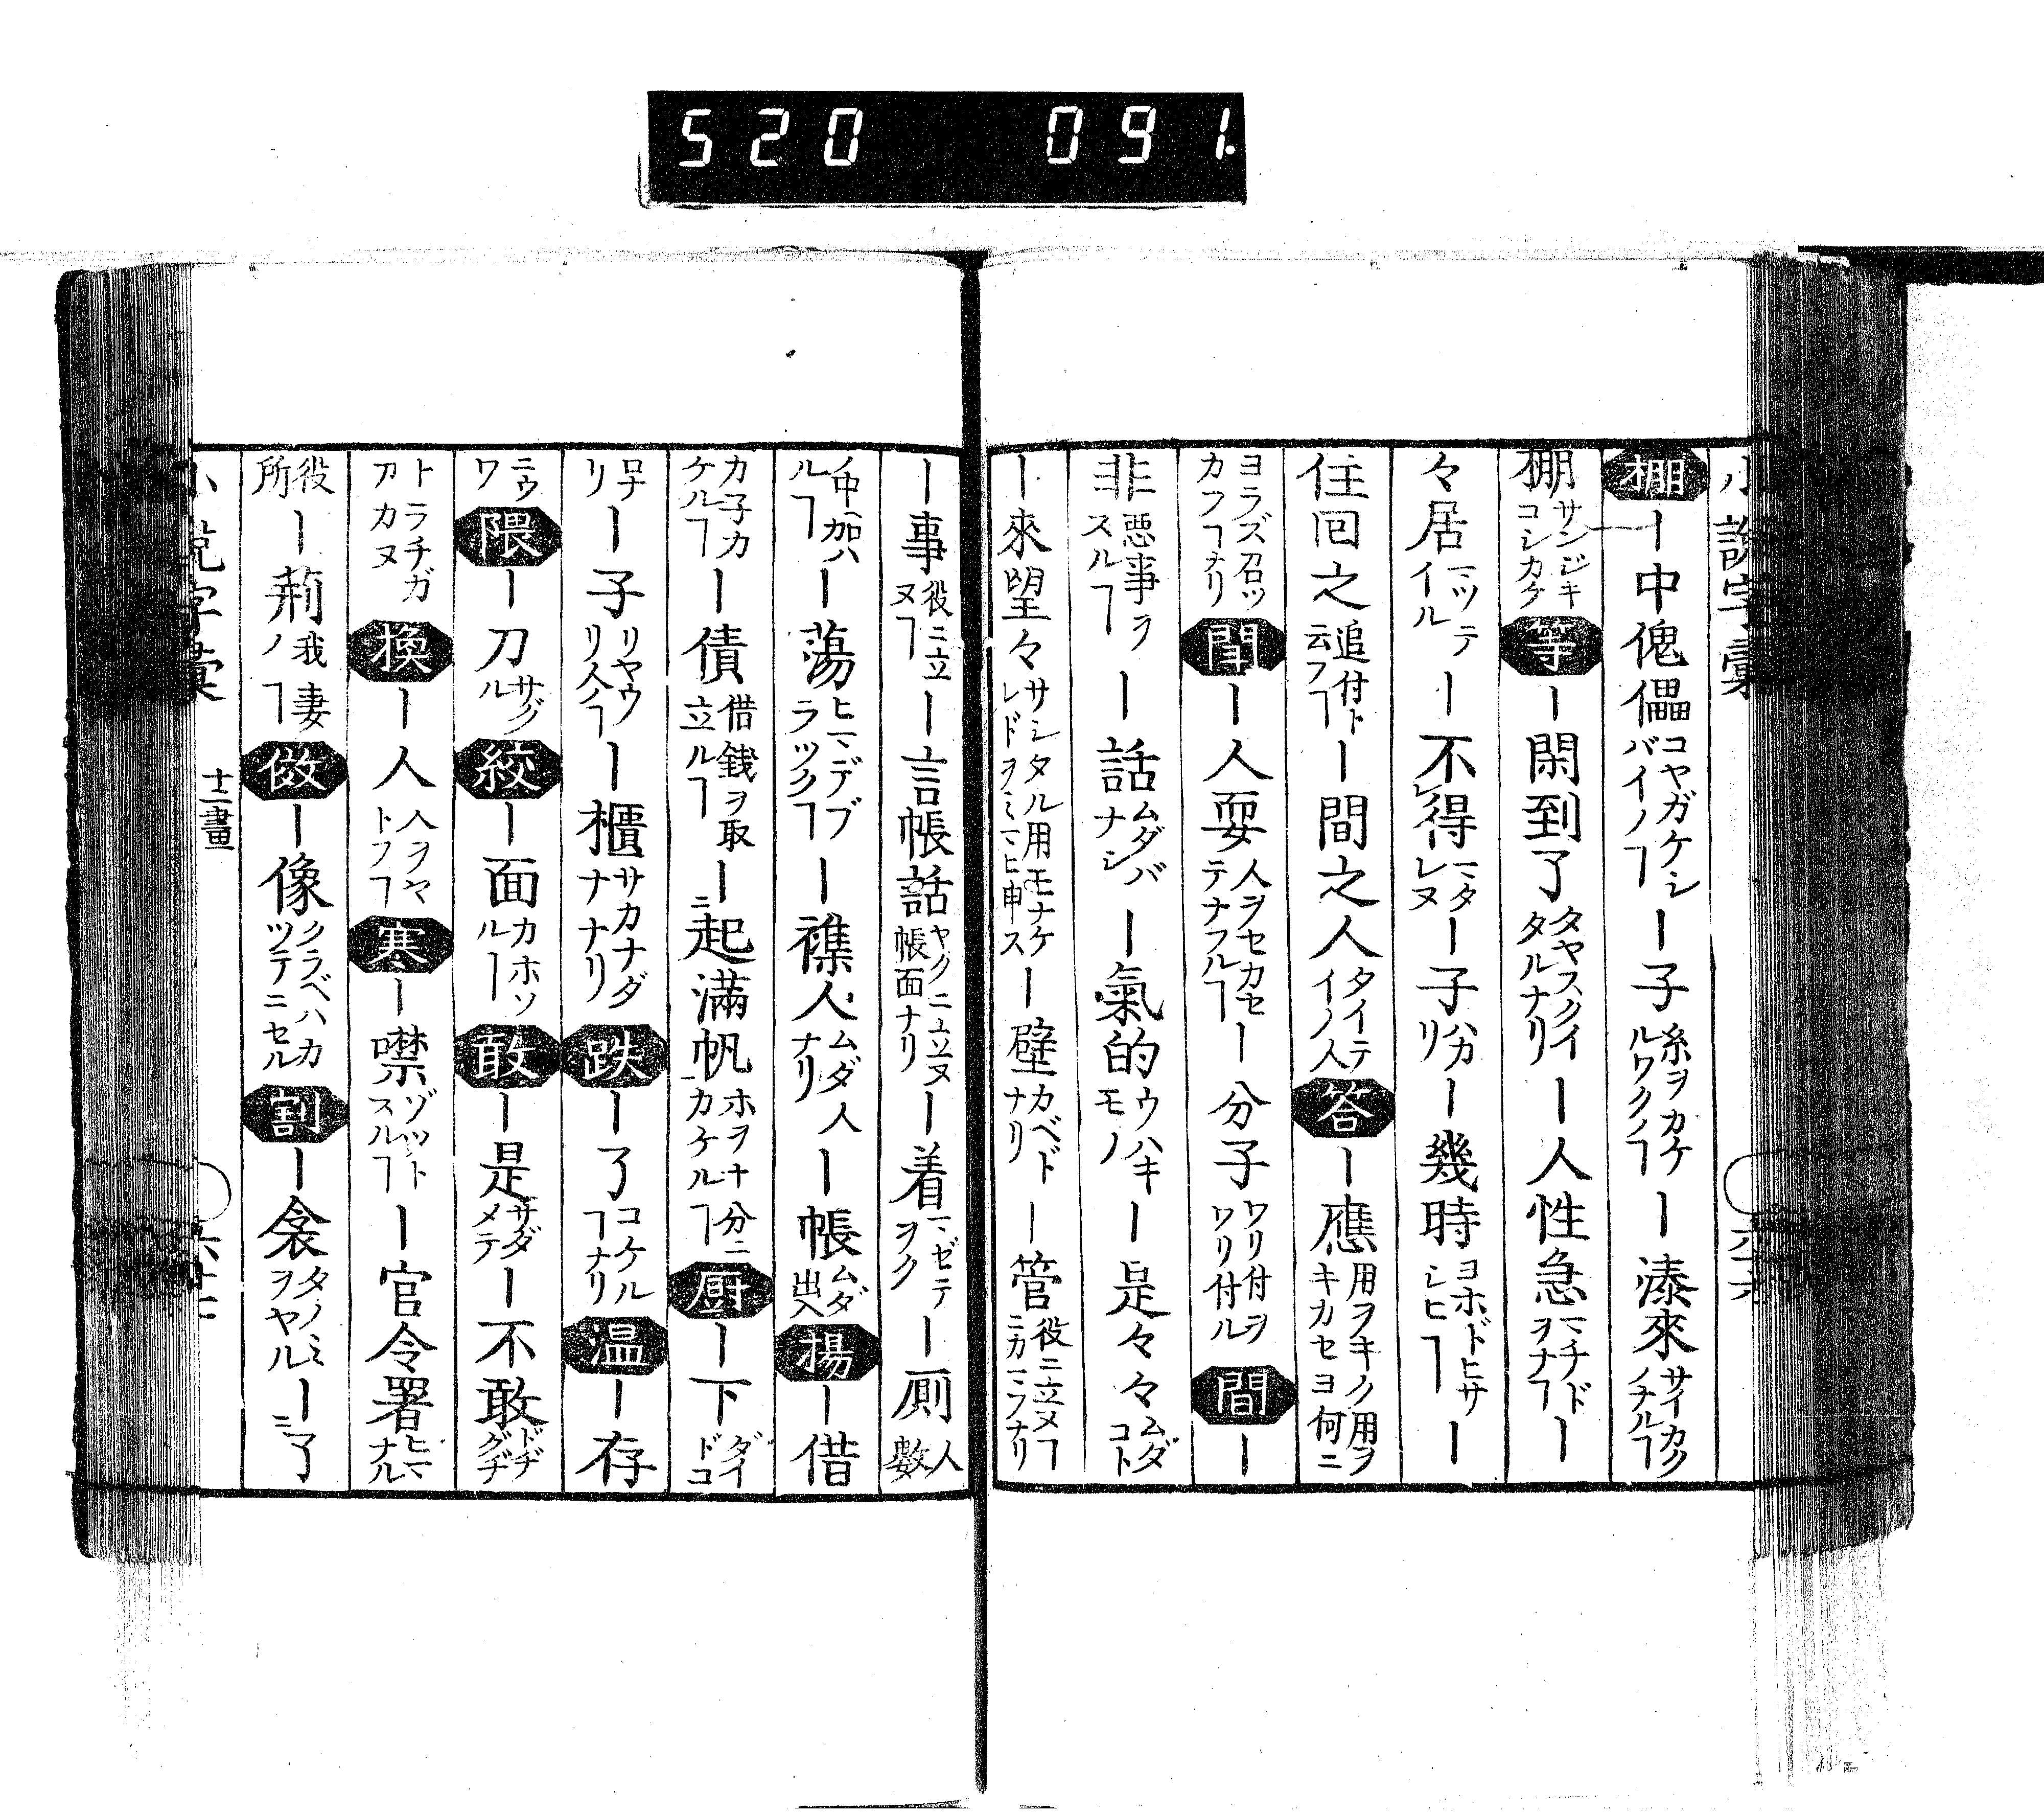 520 091.
小説字彙
棚｜中傀儡コヤガケシバイノヿ｜子糸ヲカケルワクノヿ｜湊來サイカクノナルヿ
棚サンジキコシカケ等｜閑到了タヤスクイタルナリ｜人性急マチドヲナヿ｜
々居マツテイル｜不得マタレヌ｜子ハカリ｜幾時ヨホドヒサシヒヿ｜
住回之追付ト云フヿ｜間之人タイテイノ人答｜應用ヲキノ用ヲキカセヨ何ニ
ヨラズ召ツカフヿナリ聞｜人耍人ヲセカセテナフルヿ｜分子ワリ付ヲワリ付ル間｜
非悪事ヲスルヿ｜話ムダバナシ｜氣的ウハキモノ｜是々々ムダコト
｜來望々サシタル用モナケレドヲミマヒ申ス｜壁カベドナリ｜管役ニ立ヌヿニカマフナリ
｜事役ニ立ヌヿ｜言帳話ヤクニ立ヌ帳面ナリ｜着マゼテヲク｜厠人數
ノ中ヘ加ハルヿ｜蕩ヒマデブラツクヿ｜襍人ムダ人ナリ｜帳ムダ出入揚｜借
カ子カケルヿ｜債借銭ヲ取立ルヿ｜起満帆ホヲ十分ニカケルヿ厨｜下ダイドコ
ロナリ｜子リヤウリ人ノヿ｜櫃サカナダナナリ跌｜了コケルヿナリ温｜存
ニウワ隈｜刀サグル絞｜面カホソルヿ敢｜是サダメテ｜不敢ドヂグヂ
トラチガアカヌ換｜人人ヲヤトフヿ寒｜噤ゾットスルヿ｜官令署ヒマナル
役所｜荊我妻ノヿ做｜像クラベハカツテニセル割｜衾タノミヲヤル｜了
小説字彙 十二畫